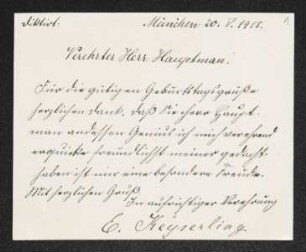 Diktirt.
München 20. V. 1915.
Verehrter Herr Hauptman!
Für die gütigen Geburtstagsgrüße
herzlichen dank, daß Sie herr Haupt-
man andessen Genius ich mich verehrend
erquicke freundlichst meiner gedacht
haben ist mir eine besondere Freude.
Mit herzlichen Gruß
In aufrichtiger Verehrung
E. Keyserling.